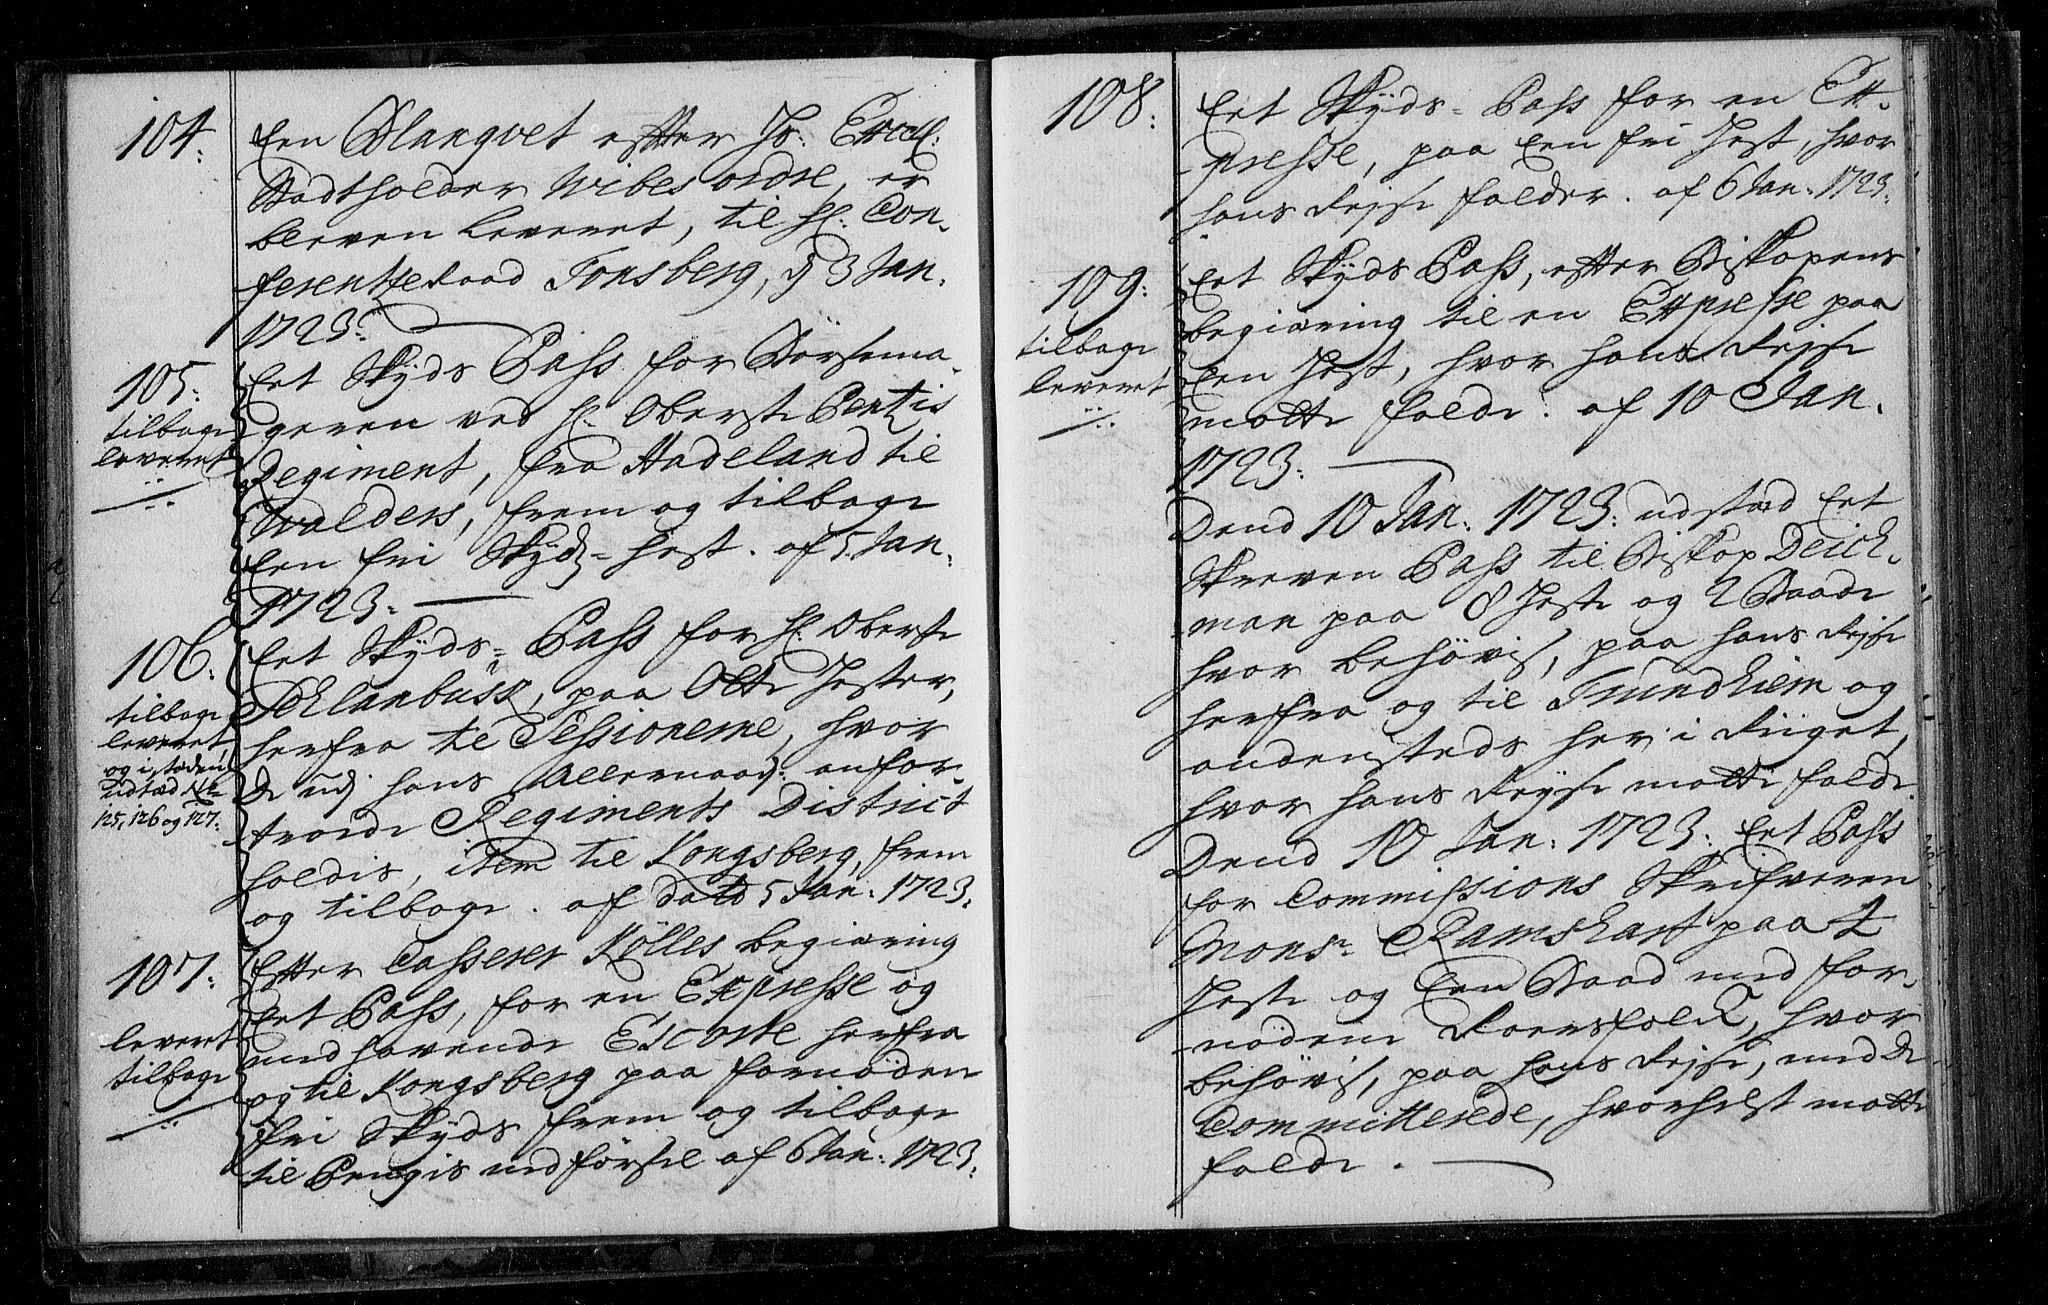 104:
Een Blanqvet efter Hs: Excell:
Stadtholder Wibes ordre, er
bleven leveret, til Hr: Con-
ferentzeRaad Tonsberg, d 3 Jan.
1723:
105:
tilbage
leveret
Eet Skyds Pass for Børsema-
geren ved Hr: Oberste Pentzis
Regiment, fra Hadeland til
Walders, frem og tilbage
Een fri Skyds-Hest. af 5. Jan:
1723:
106:
tilbage
leveret,
og i stæden
udstæd No
125, 126 og 127:
Eet Skyds-Pass for Hr: Oberste
Schlanbusk, paa Otte Hester,
herfra til Sessionerne, hvor
de ud hans Allernaad: anfor-
troede Regiments District
holdis, item til Kongsberg, frem
og tilbage. af dato 5 Jan: 1723:
107:
leveret
tilbage
Efter Casserer Kølles begiæring
Eet Pass, for en Expresse og
medhavende Escorte herfra
og til Kongsberg paa fornøden
fri Skyds frem og tilbage
til Pengis udførsel af 6 Jan: 1723:
108:
Eet Skyds-Pass for en Ex-
presse, paa Een fri Hest, hvor
hans Rejse falder. af 6 Jan. 1723:
109:
tilbage
leveret
Eet Skyds Pass, efter Biskopens
begiæring til en Expresse paa
Een Hest, hvor hans Rejse
motte falde: af 10 Jan.
1723:
Dend 10 Jan. 1723: udstæd Eet
Skreven Pass til Biskop Deich-
man paa 8 Heste og 2 Baade
hvor behøvis, paa hans Rejse
herfra og til Trundhiem og
andensteds her i Riiget,
hvor hans Rejse motte falde.
Dend 10 Jan: 1723: Eet Pass
for Commissions Skrifveren
Monsr Ramshart paa 4
Heste og Een Baad med for-
nøden Roersfolck, hvor
behøvis, paa hans Rejse, med de
Committerede, hvorhelst motte
falde.